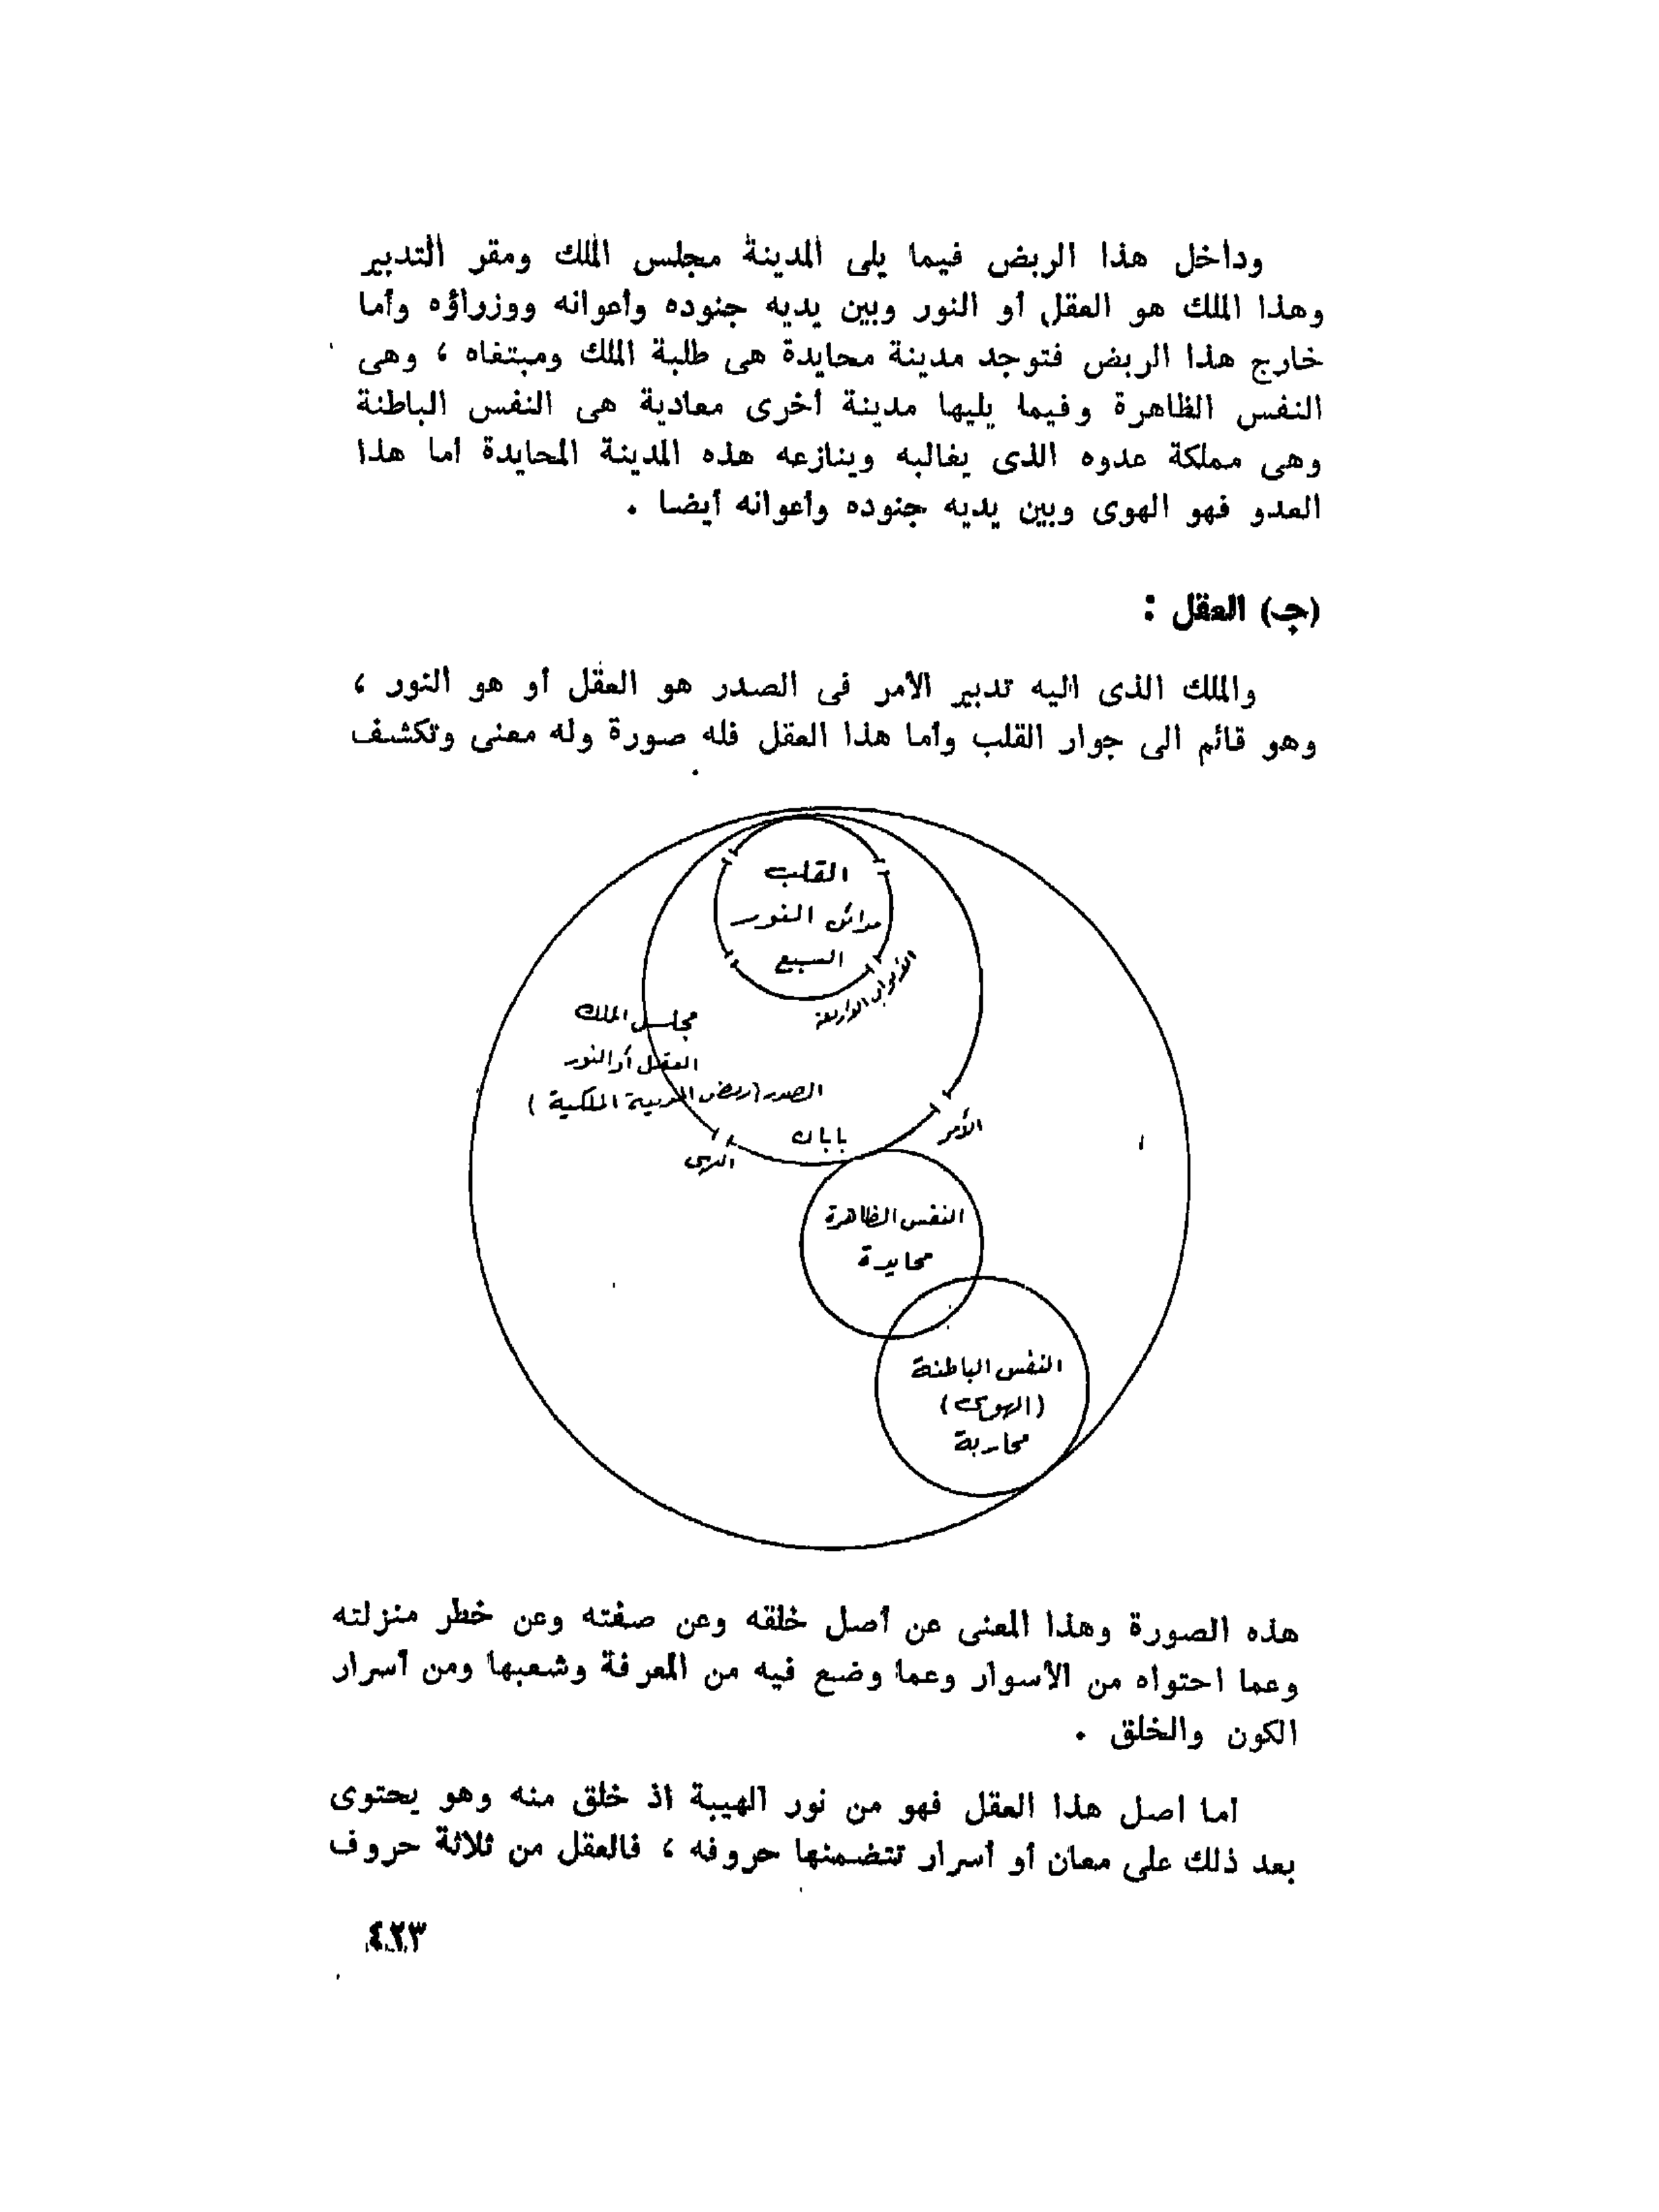 وداخل هذا الربض فيما يلى المدينة مجلس الملك ومقر التدبير
وهذا الملك هو العقل أو النور وبين يديه جنوده وأعوانه ووزراؤه وأما
خارج هذا الربض فتوجد مدينة محايدة هى طلبة الملك ومبتغاه ، وهى
النفس الظاهرة وفيما يليها مدينة أخرى معادية هى النفس الباطنة
وهى مملكة عدوه الذى يغالبه وينازعه هذه المدينة المحايدة اما هذا
العدو فهو الهوى وبين يديه جنوده وأعوانه أيضا .
(جـ) العقل :
والملك الذى اليه تدبير الأمر فى الصدر هو العقل أو هو النور ،
وهو قائم الى جوار القلب وأما هذا العقل فله صورة وله معنى وتكشف
القلب
مدائن النور
السبع
الأبواب الأربعة
مجلس الملك
العقل أو النور
الصدر (ربض المدينة الملكية)
بابان
الأمر
النهى
النفس الظاهرة
محايدة
النفس الباطنة
(الهوى)
محاربة
هذه الصورة وهذا المعنى عن أصل خلقه وعن صفته وعن خطر منزلته
وعما احتواه من الأسوار وعما وضع فيه من المعرفة وشعبها ومن أسرار
الكون والخلق .
اما اصل هذا العقل فهو من نور الهيبة اذ خلق منه وهو يحتوى
بعد ذلك على معان أو أسرار تتضمنها حروفه ، فالعقل من ثلاثة حروف
٤٢٣